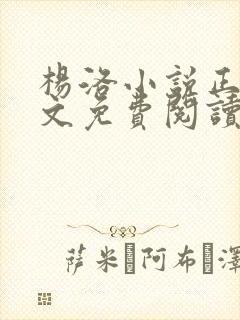 楊洛小說正
文免費閱讀
萨米 阿布 澤